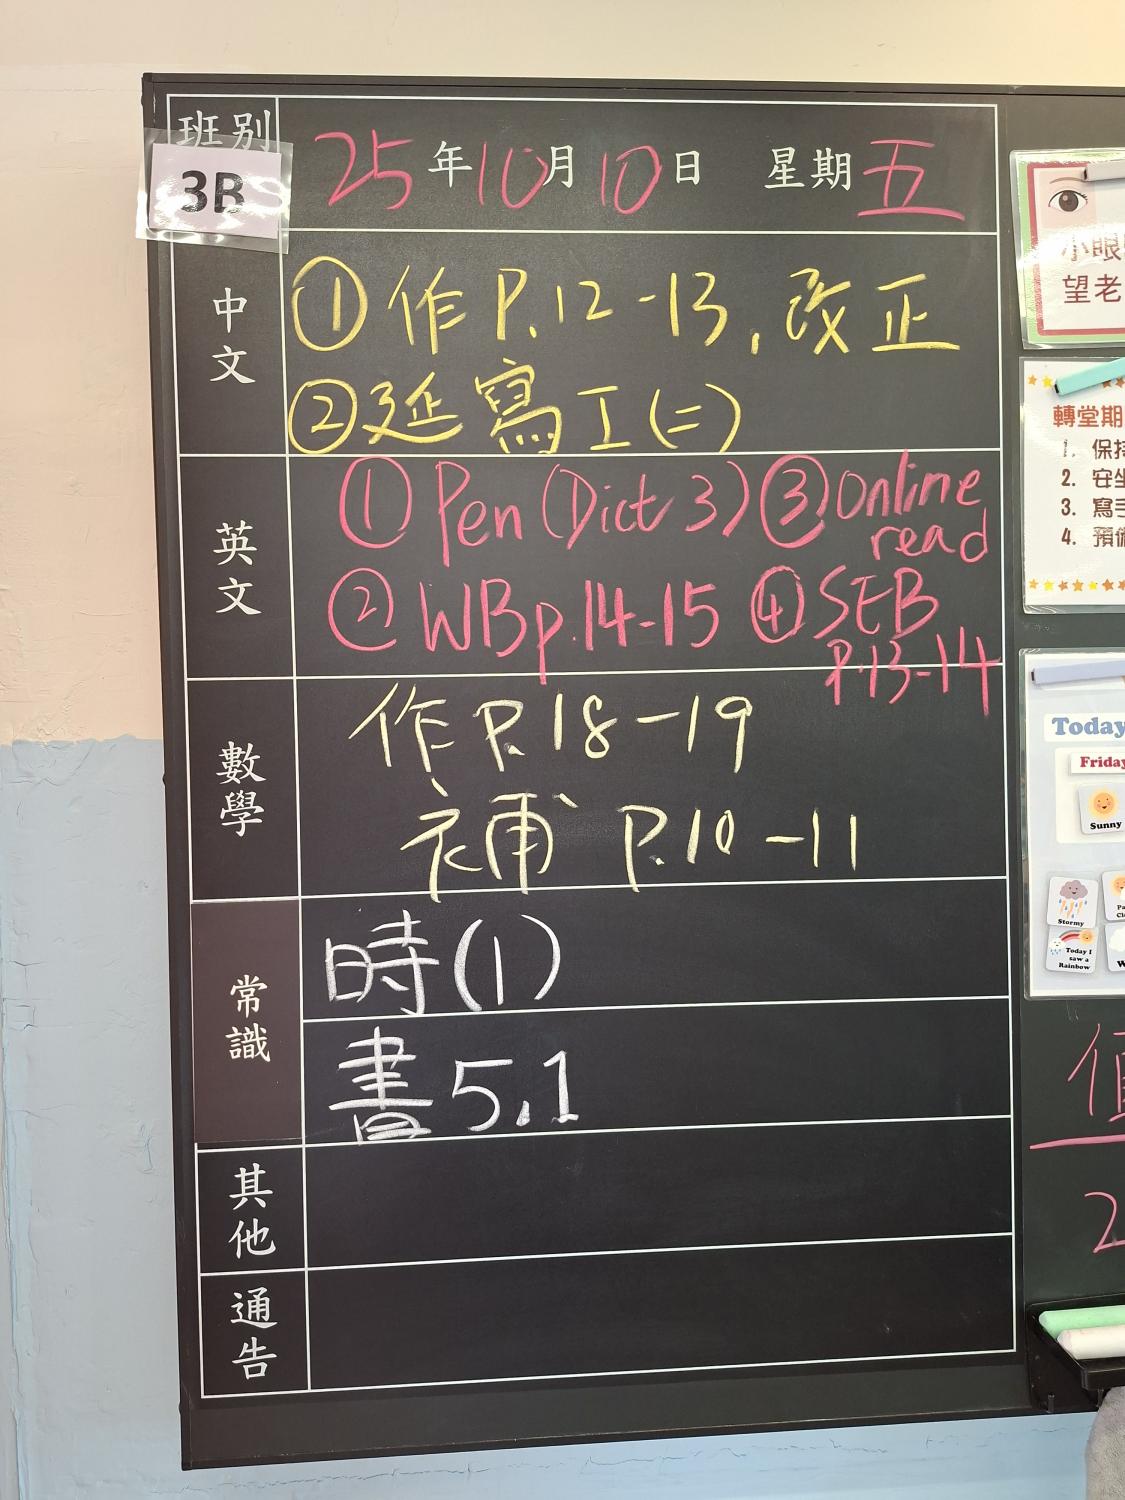 班別
3B
25年10月10日 星期五
中文
① 作 P.12-13,改正
② 延寫工(二)
英文
① Pen (Dict 3)
② WB p.14-15
③ Online
read
④ SEB
P.13-14
數學
作 P.18-19
補 P.10-11
常識
時(1)
書 5.1
其他
通告
小眼
望老
轉堂期
1. 保持
2. 安坐
3. 寫手
4. 預備
Today
Friday
Sunny
Stormy
Today I
saw a
Rainbow
值
2